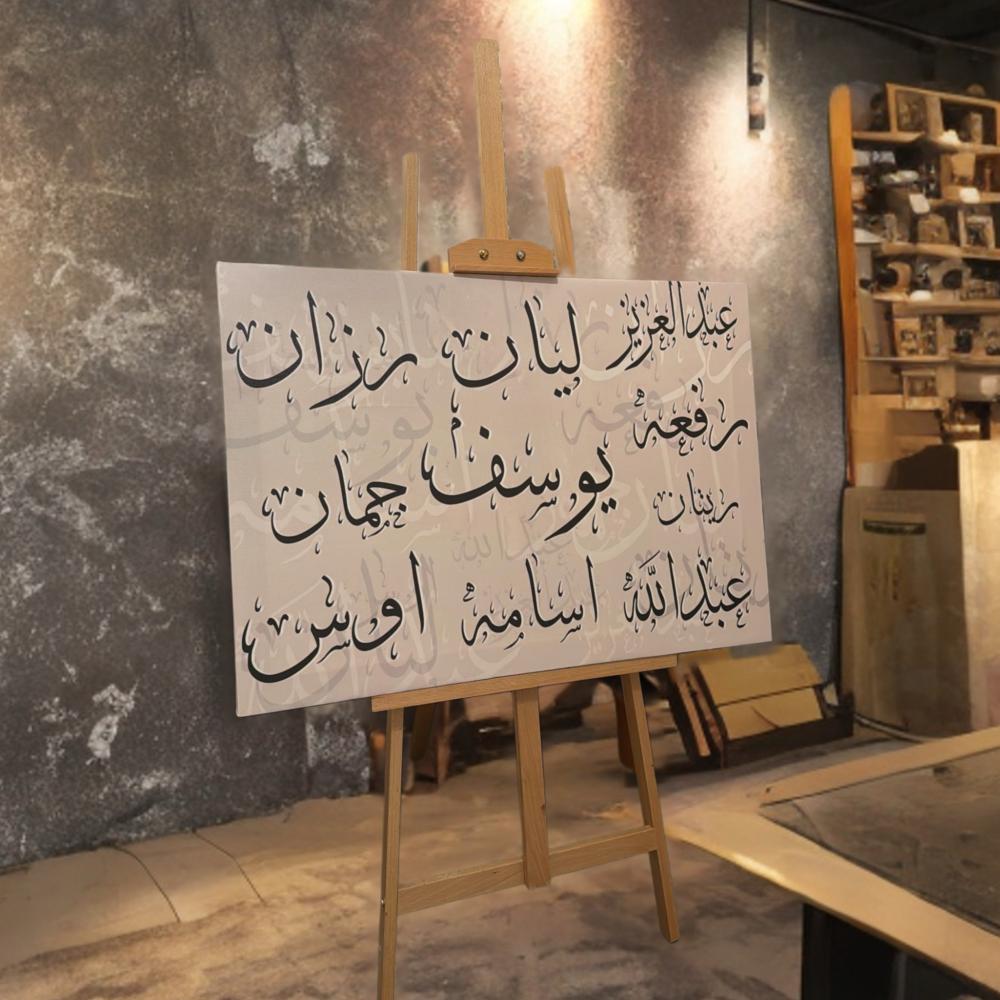 عبدالعزيز ليان رزان
رفعه
يوسف جمان
ريتان
عبدالله اسامه اوس